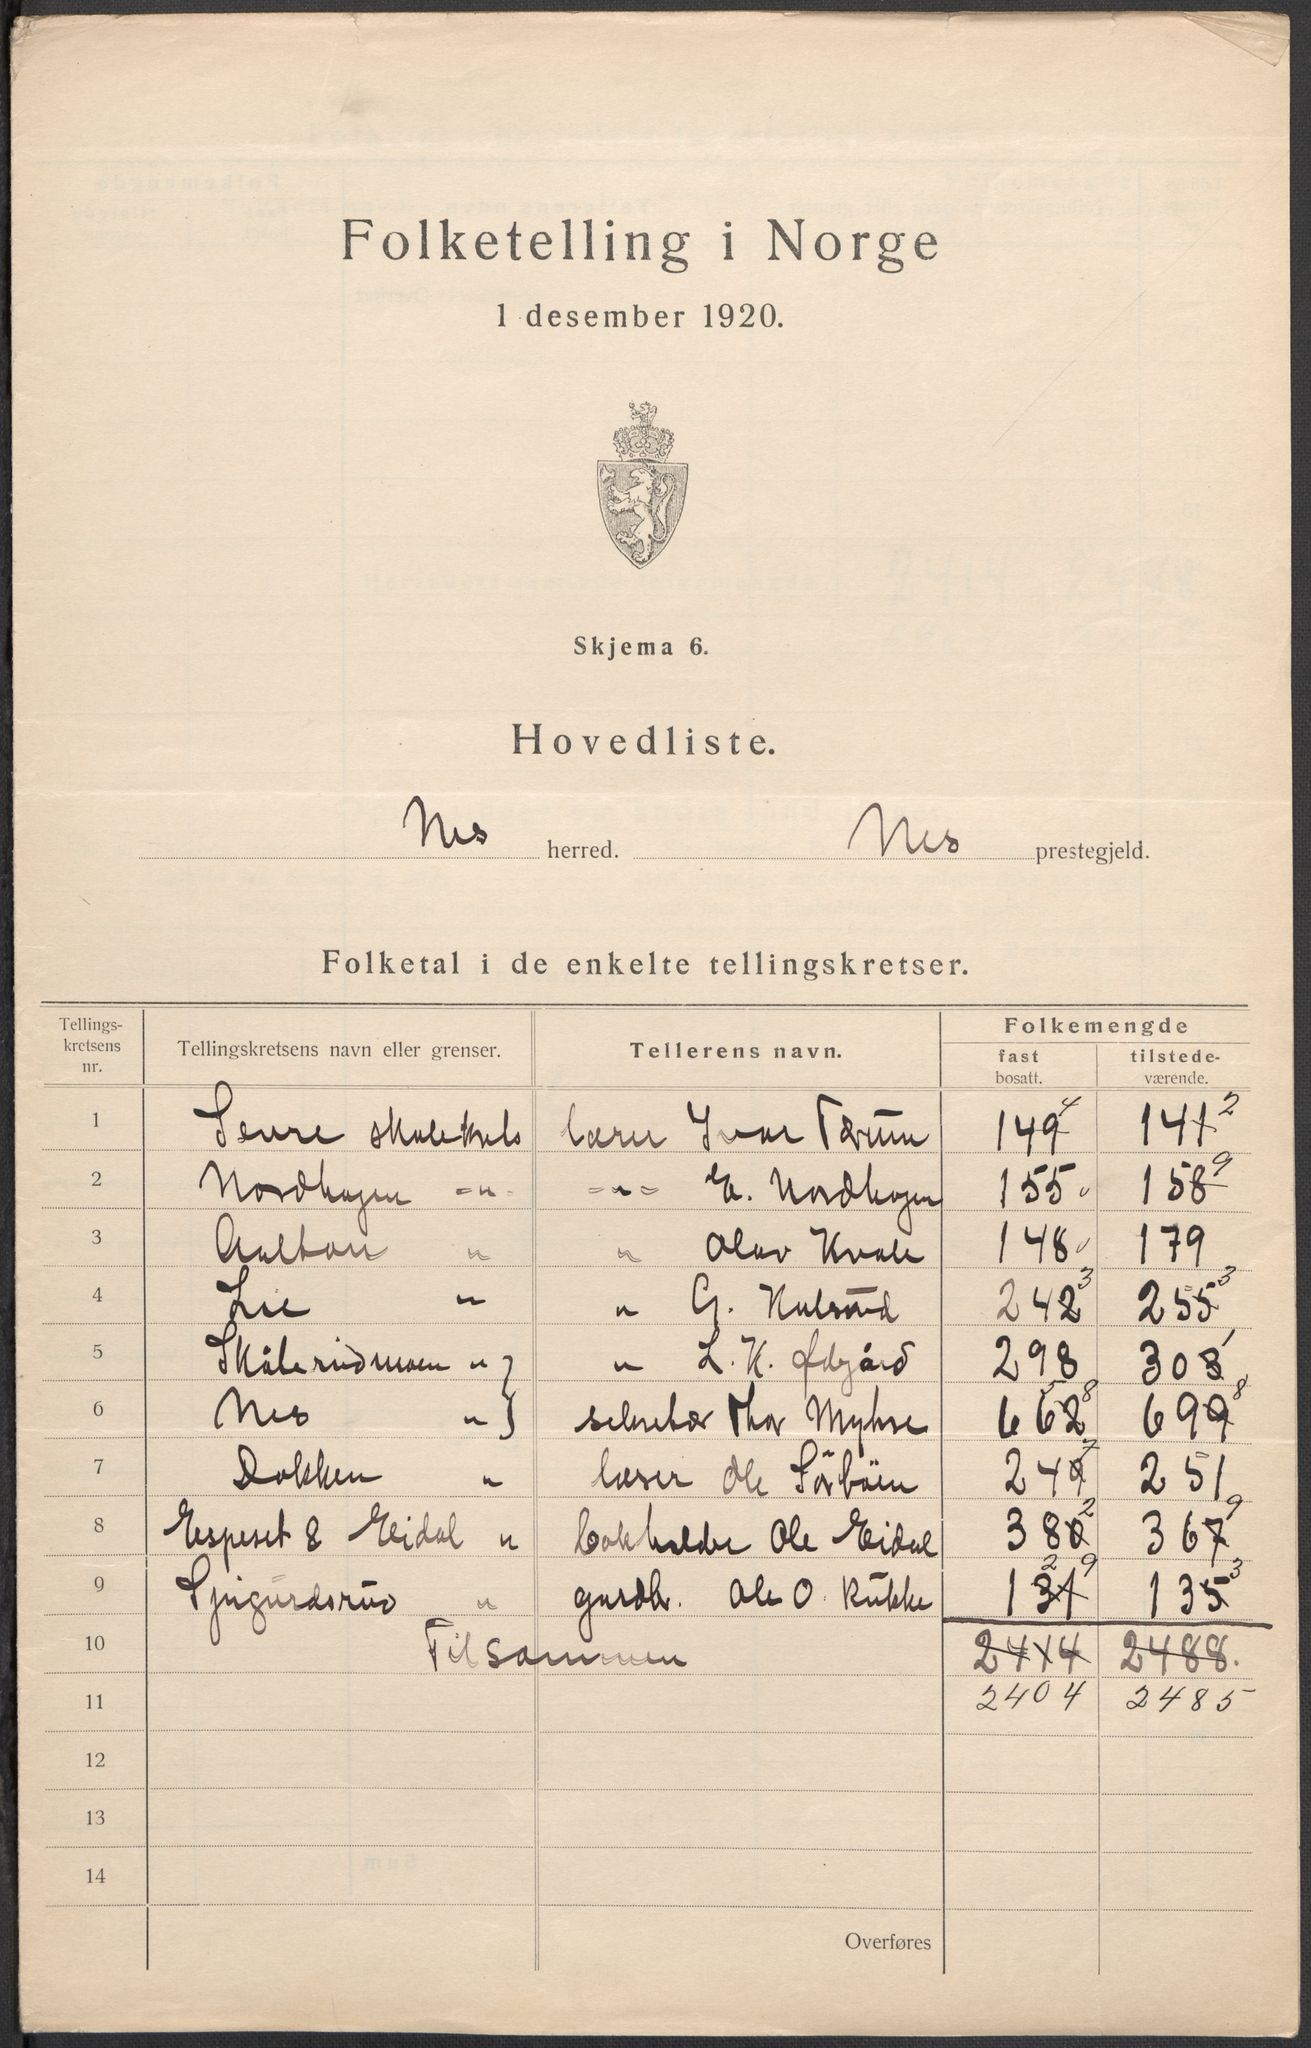 Folketelling i Norge
1 desember 1920.
Skjema 6.
Hovedliste.
Nes herred. Nes prestegjeld.
Folketal i de enkelte tellingskretser.
Tellings-kretsens nr. Tellingskretsens navn eller grenser. Tellerens navn. Folkemengde
fast bosatt. tilstede-værende.
1 lærer Ivar 149 4 141 2
2 Nordhagen -"- -"- E. Nordhagen 155 158 9
3 " " Olav Kvale 148 179
4 Lie " " G. 242 3 255 3
5 Skålerudmoen " } " L. K. Ødegård 298 303 1
6 Nes " } sekretær Thor Myhre 662 58 699 8
7 Dokken " lærer Ole Sörböen 249 7 251
8 Espeset & Eidal " bokholder Ole Eidal 380 2 367 9
9 Sjugurdsrud " gardbr. Ole O. Rukke 131 29 135 3
10 Tilsammen 2414 2488.
11 2404 2485
12
13
14
Overføres